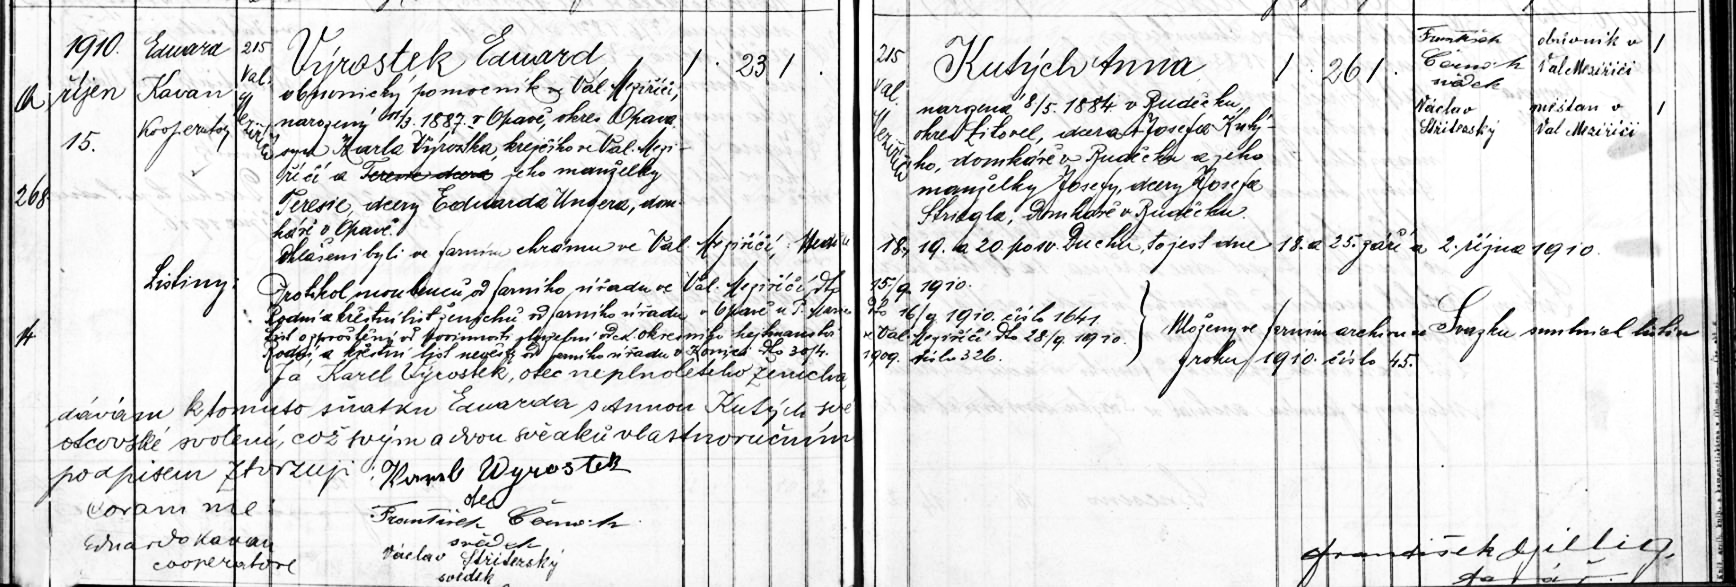 1910.
říjen
15.
268.
Eduard
Kavan
Kooperator
215
Val.
Meziříčí
Výrostek Eduard,
obuvnický pomocník ve Val. Meziříčí,
narozený 11/3. 1887. v Opavě, okres Opava,
syn Karla Výrostka, krejčího ve Val. Mezi-
říčí a Teresie dcera jeho manželky
Teresie, dcery Eduarda Ungera, dom-
káře v Opavě.
1. 23 1.
215
Val.
Meziříčí
Kutých Anna
narozená 8/5. 1884 v Rudéčku,
okres Litovel, dcera Josefa Kutý-
ho, domkáře v Rudéčku a jeho
manželky Josefy, dcery Josefa
Striegla, domkáře v Rudéčku.
1. 26 1.
František
svědek
obuvník v
Val Meziříčí
1
Václav
Stříteský
měšťan v
Val Meziříčí
1
Ohlášeni byli ve farním chrámu ve Val. Meziříčí, neděli 18., 19. a 20. po sv. Duchu, to jest dne 18. a 25. září a 2. října 1910.
Listiny:
Protokol snoubenců od farního úřadu ve Val. Meziříčí dto 15/9 1910.
Rodní a křestní list ženichů od farního úřadu v Opavě u P. Marie dto 16/9 1910. číslo 1641
List o sproštění od povinnosti ohlašební od c.k. okresního hejtmanství v Val. Meziříčí dto 28/9 1910.
Rodní a křestní list nevěsty od farního úřadu v dto 30/4. 1909. číslo 326.
Vloženy ve farním archivu ve Svazku smluvních listin
z roku 1910. číslo 45.
Já Karel Výrostek, otec neplnoletého ženicha
dávám k tomuto sňatku Eduarda s Annou Kutých své
otcovské svolení, což svým a dvou svědků vlastnoručním
podpisem ztvrzuji:
Karel Wyrostek
otec
coram me:
Eduardo Kavan
cooperatore
František
svědek
Václav Stříteský
svědek
František
farář.